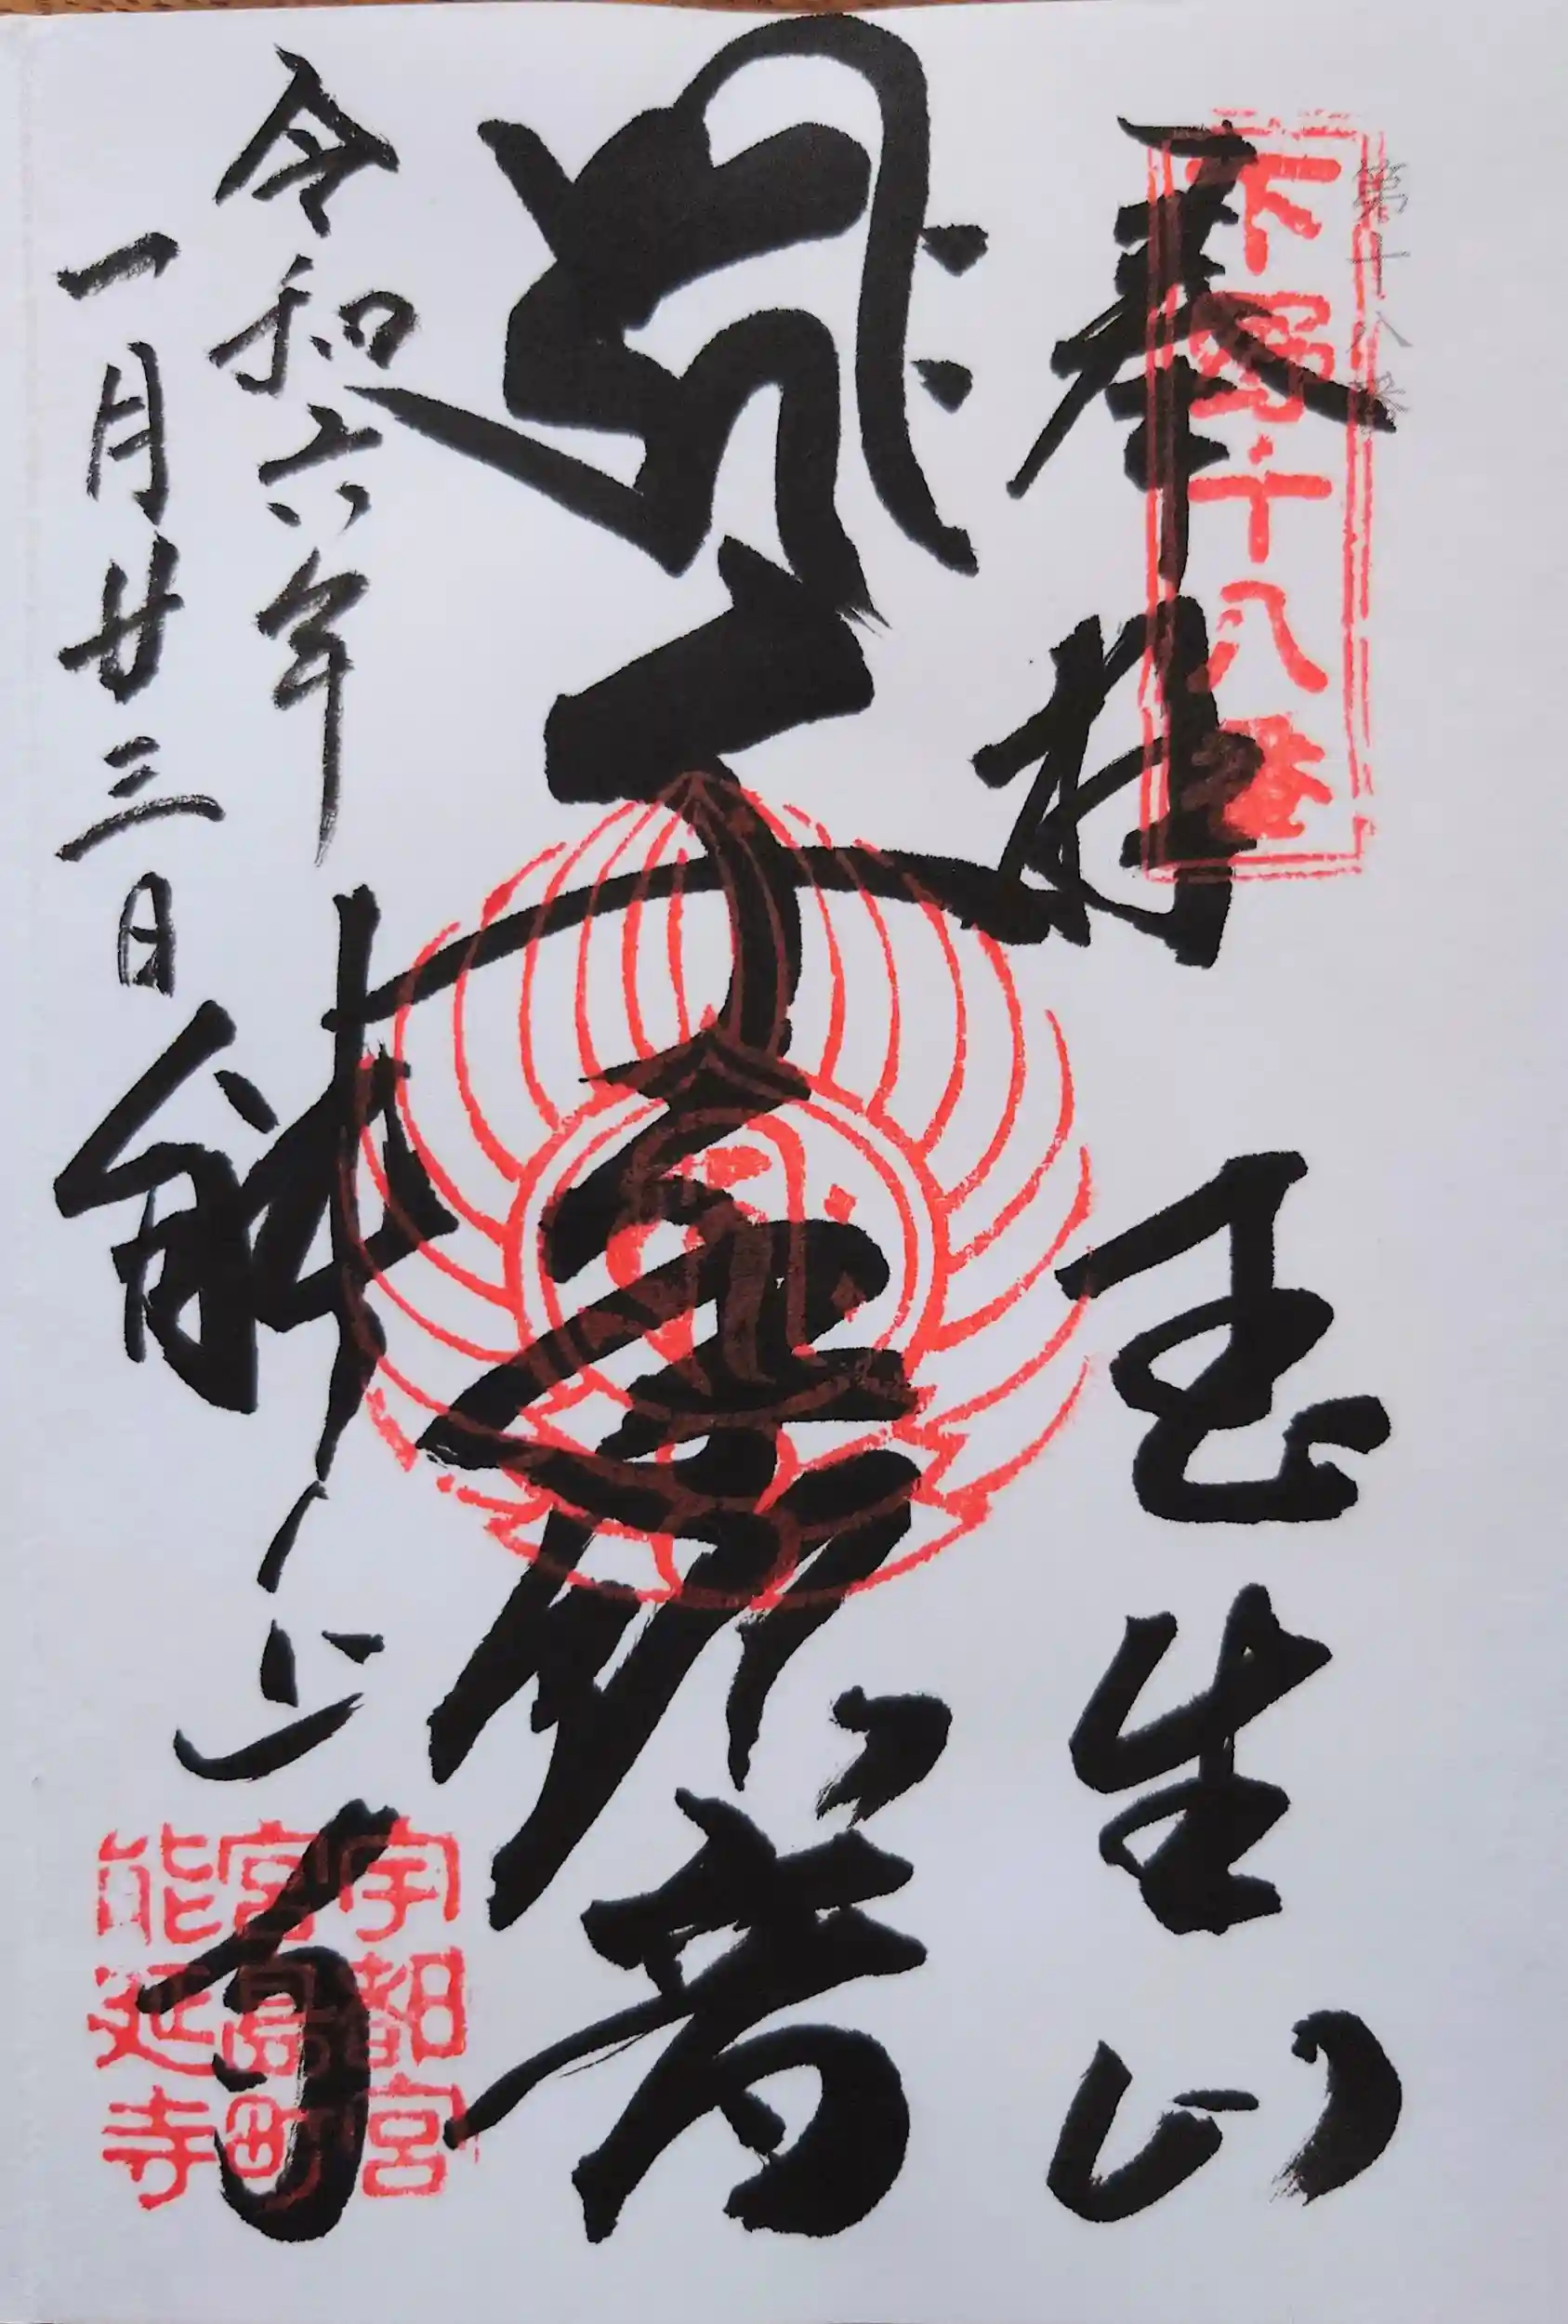 第十八番
下野十八番
奉拝 玉生山
聖観音
令和六年
一月廿三日
能延寺
宇都宮
宮島町
能延寺